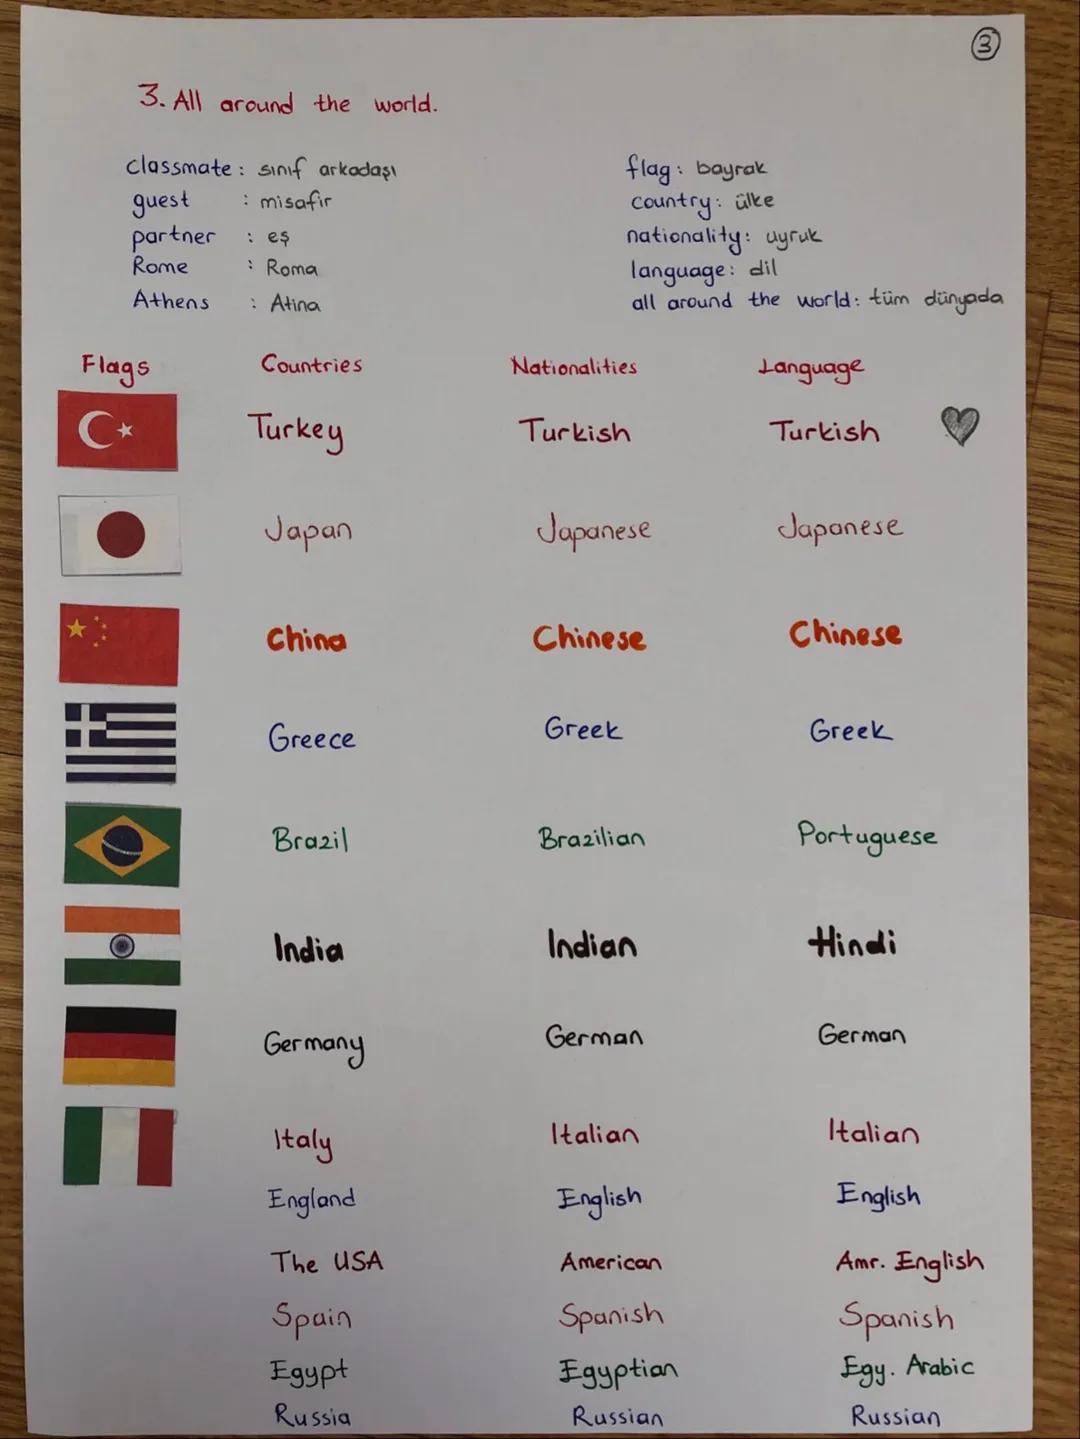 3
3. All around the world.
classmate : sınıf arkadaşı
guest : misafir
partner : eş
Rome : Roma
Athens : Atina
flag : bayrak
country : ülke
nationality : uyruk
language : dil
all around the world : tüm dünyada
Flags Countries Nationalities Language
Turkey Turkish Turkish
Japan Japanese Japanese
China Chinese Chinese
Greece Greek Greek
Brazil Brazilian Portuguese
India Indian Hindi
Germany German German
Italy Italian Italian
England English English
The USA American Amr. English
Spain Spanish Spanish
Egypt Egyptian Egy. Arabic
Russia Russian Russian